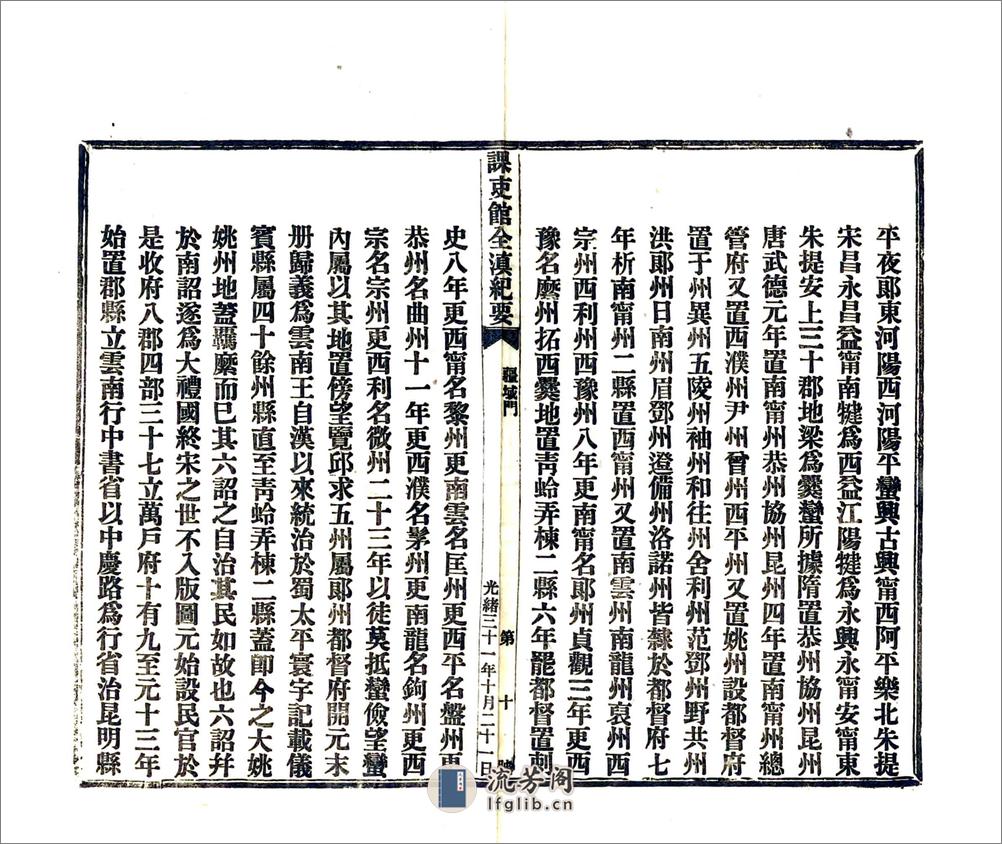 平夜郎東河陽西河陽平蠻興古興甯西阿平樂北朱提
宋昌永昌益甯南犍爲西益江陽犍爲永興永甯安甯東
朱提安上三十郡地梁爲爨蠻所據隋置恭州協州昆州
唐武德元年置南甯州恭州協州昆州四年置南甯州總
管府又置西濮州尹州曾州西平州又置姚州設都督府
置于州異州五陵州袖州和往州舍利州范鄧州野共州
洪郎州日南州眉鄧州邆備州洛諾州皆隸於都督府七
年析南甯州二縣置西甯州又置南雲州南龍州裒州西
宗州西利州西豫州八年更南甯名郎州貞觀三年更西
豫名麽州拓西爨地置靑蛉弄棟二縣六年罷都督置刺
課吏館全滇紀要
疆域門
第十號
光緒三十一年十月二十一日
史八年更西甯名黎州更南雲名匡州更西平名盤州更
恭州名曲州十一年更西濮名髳州更南龍名鉤州更西
宗名宗州更西利名微州二十三年以徒莫抵蠻儉望蠻
內屬以其地置傍望覽邱求五州屬郎州都督府開元末
册歸義爲雲南王自漢以來統治於蜀太平寰宇記載儀
賓縣屬四十餘州縣直至靑蛉弄棟二縣蓋卽今之大姚
姚州地蓋羈縻而已其六詔之自治其民如故也六詔幷
於南詔遂爲大禮國終宋之世不入版圖元始設民官於
是收府八郡四部三十七立萬戶府十有九至元十三年
始置郡縣立雲南行中書省以中慶路爲行省治昆明縣
流芳阁
lfglib.cn